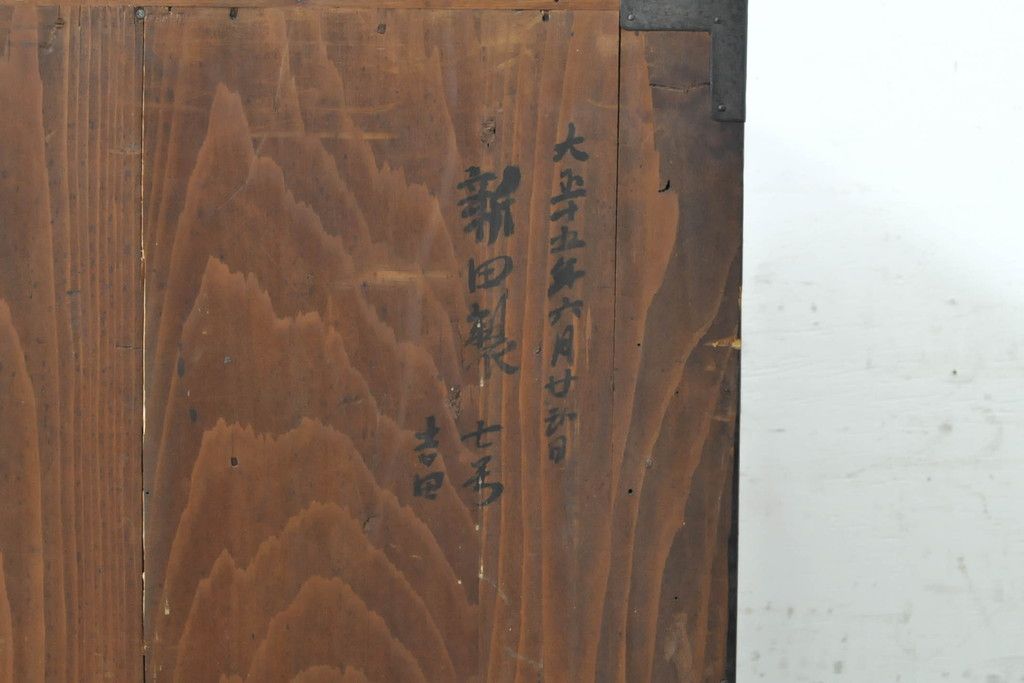 大正十五年六月廿弐日
新田製
七号
吉田